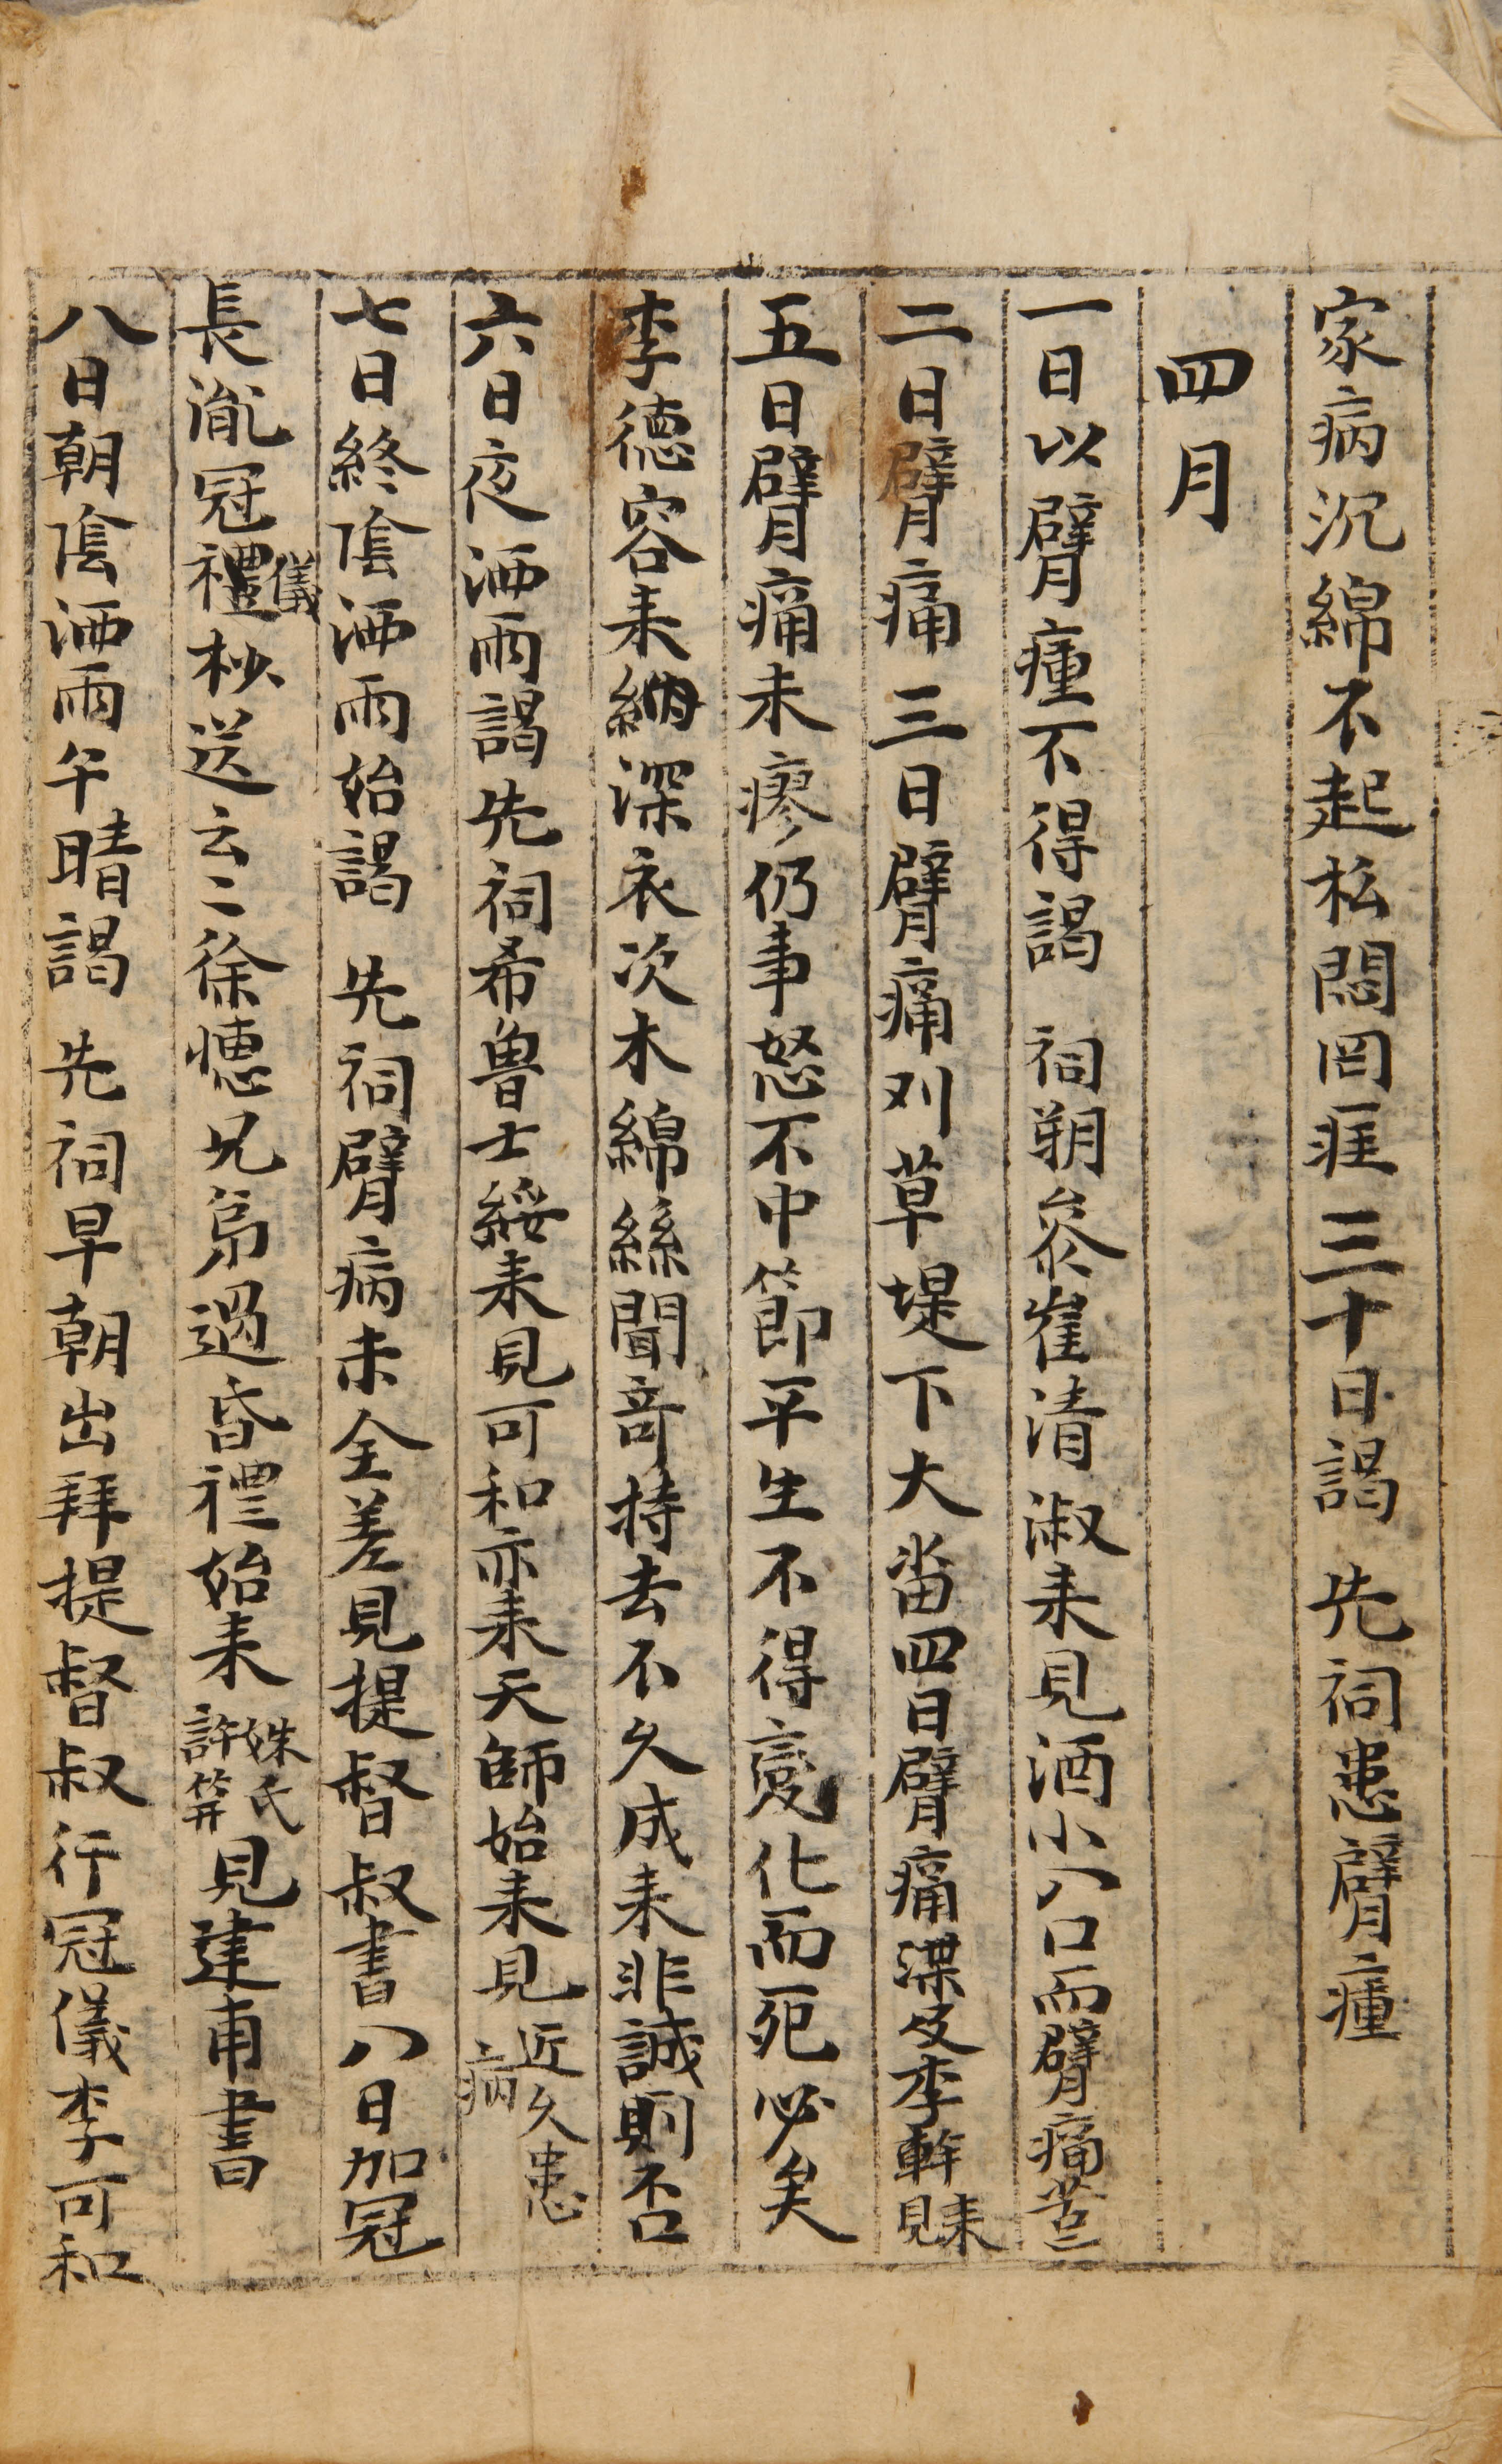 家病沉綿不起松悶罔涯三十日謁 先祠患臂瘇
四月
一日以臂瘇不得謁 祠朔叅崔清淑来見酒小八口而臂痛苦〻
二日臂痛三日臂痛刈草堤下大畓四日臂痛渫皮李斡来見
五日臂痛未瘳仍事怒不中節平生不得變化而死必矣
李德容来納深衣次木綿絲聞竒持去不久成来非誠則否
六日夜洒雨謁先祠希魯士綏来見可和亦来天師始来見近久患病
七日終陰洒雨始謁 先祠臂病未全差見提督叔書八日加冠
長胤冠禮儀抄送云〻徐憓兄弟過昏禮始来姝氏許筭見建甫書
八日朝陰洒雨午晴謁 先祠早朝出拜提督叔行冠儀李可和